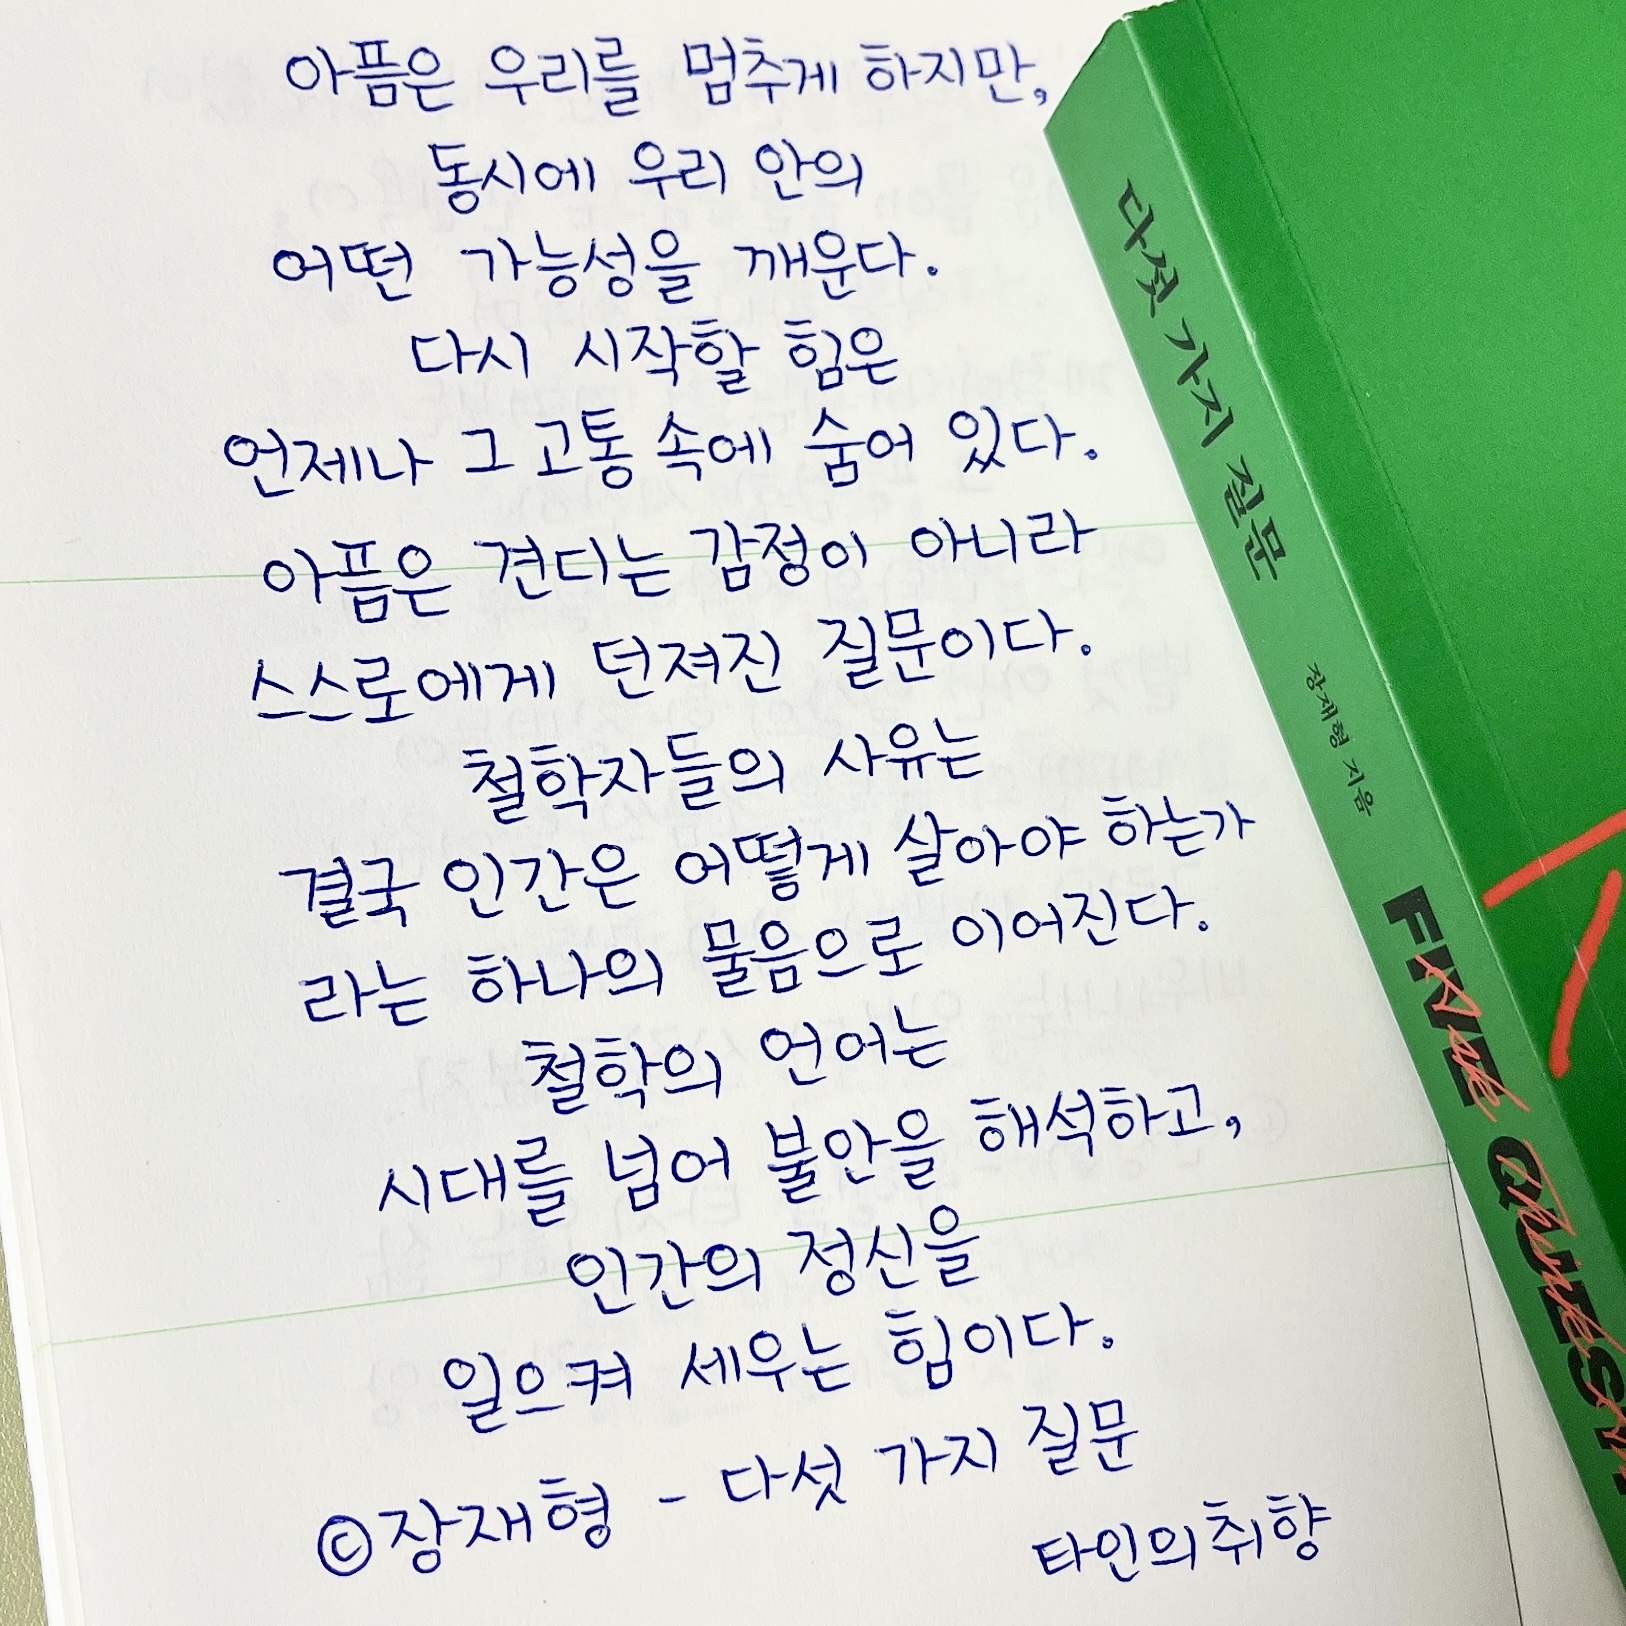 아픔은 우리를 멈추게 하지만,
동시에 우리 안의
어떤 가능성을 깨운다.
다시 시작할 힘은
언제나 그 고통 속에 숨어 있다.
아픔은 견디는 감정이 아니라
스스로에게 던져진 질문이다.
철학자들의 사유는
결국 인간은 어떻게 살아야 하는가
라는 하나의 물음으로 이어진다.
철학의 언어는
시대를 넘어 불안을 해석하고,
인간의 정신을
일으켜 세우는 힘이다.
©장재형 - 다섯 가지 질문
타인의취향
다섯 가지 질문 장재형 지음
FIVE QUEST